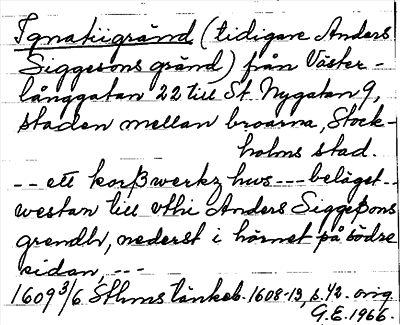 Ignatiigränd (tidigare Anders
Siggesons gränd) från Väster-
långgatan 22 till St. Nygatan 9,
staden mellan broarna, Stock-
holms stad.
-- ett korßwerkz hws --- beläget --
westan till vthi Anders Siggeßons
grendh, nederst i hörnet på södre
sidan, ---
1609 3/6 Sthms tänkeb. 1608-13, s. 42. orig.
G.E. 1966.